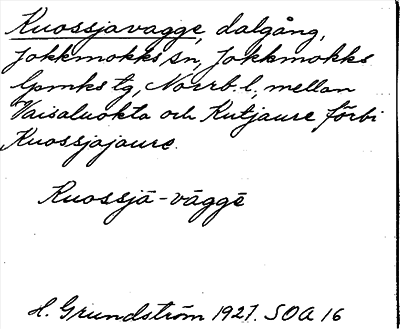 Kuossjavagge, dalgång,
Jokkmokks sn, Jokkmokks
lpmks tg, Norrb. l, mellan
Vaisaluokta och Kutjaure förbi
Kuossjajaure.
Kuossjā-vāggē
H. Grundström 1927. SOA 16